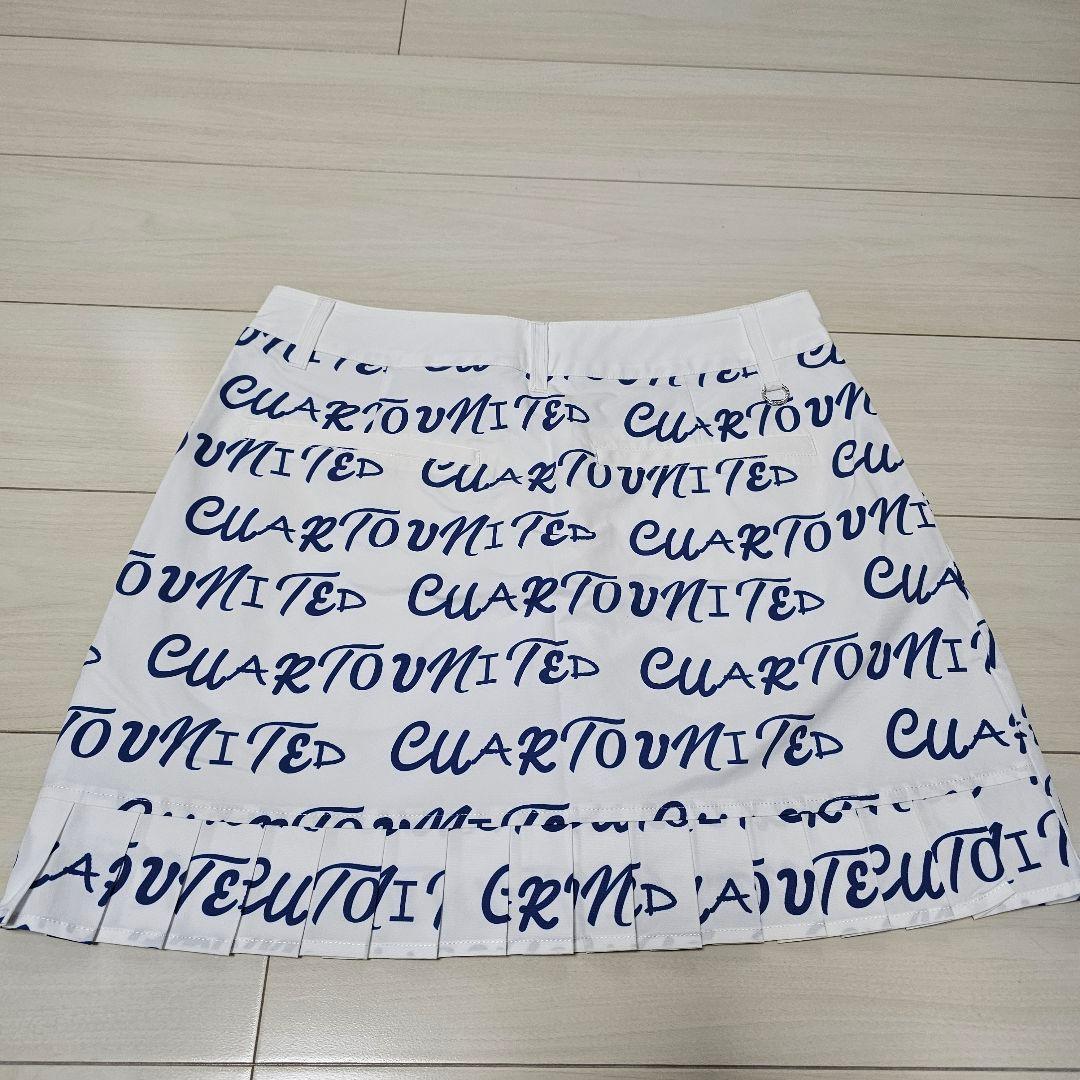 UNITED CUARTOUNITED CU
CUARTOUNITED CUARTOUN
OUNITED CUARTOUNITED CU
CUARTOUNITED CUARTOUNI
OUNITED CUARTOUNITED CUAR
CUARTOUNITED CUARTOUNIT
TOUNITED CUARTOUNITED CUAR